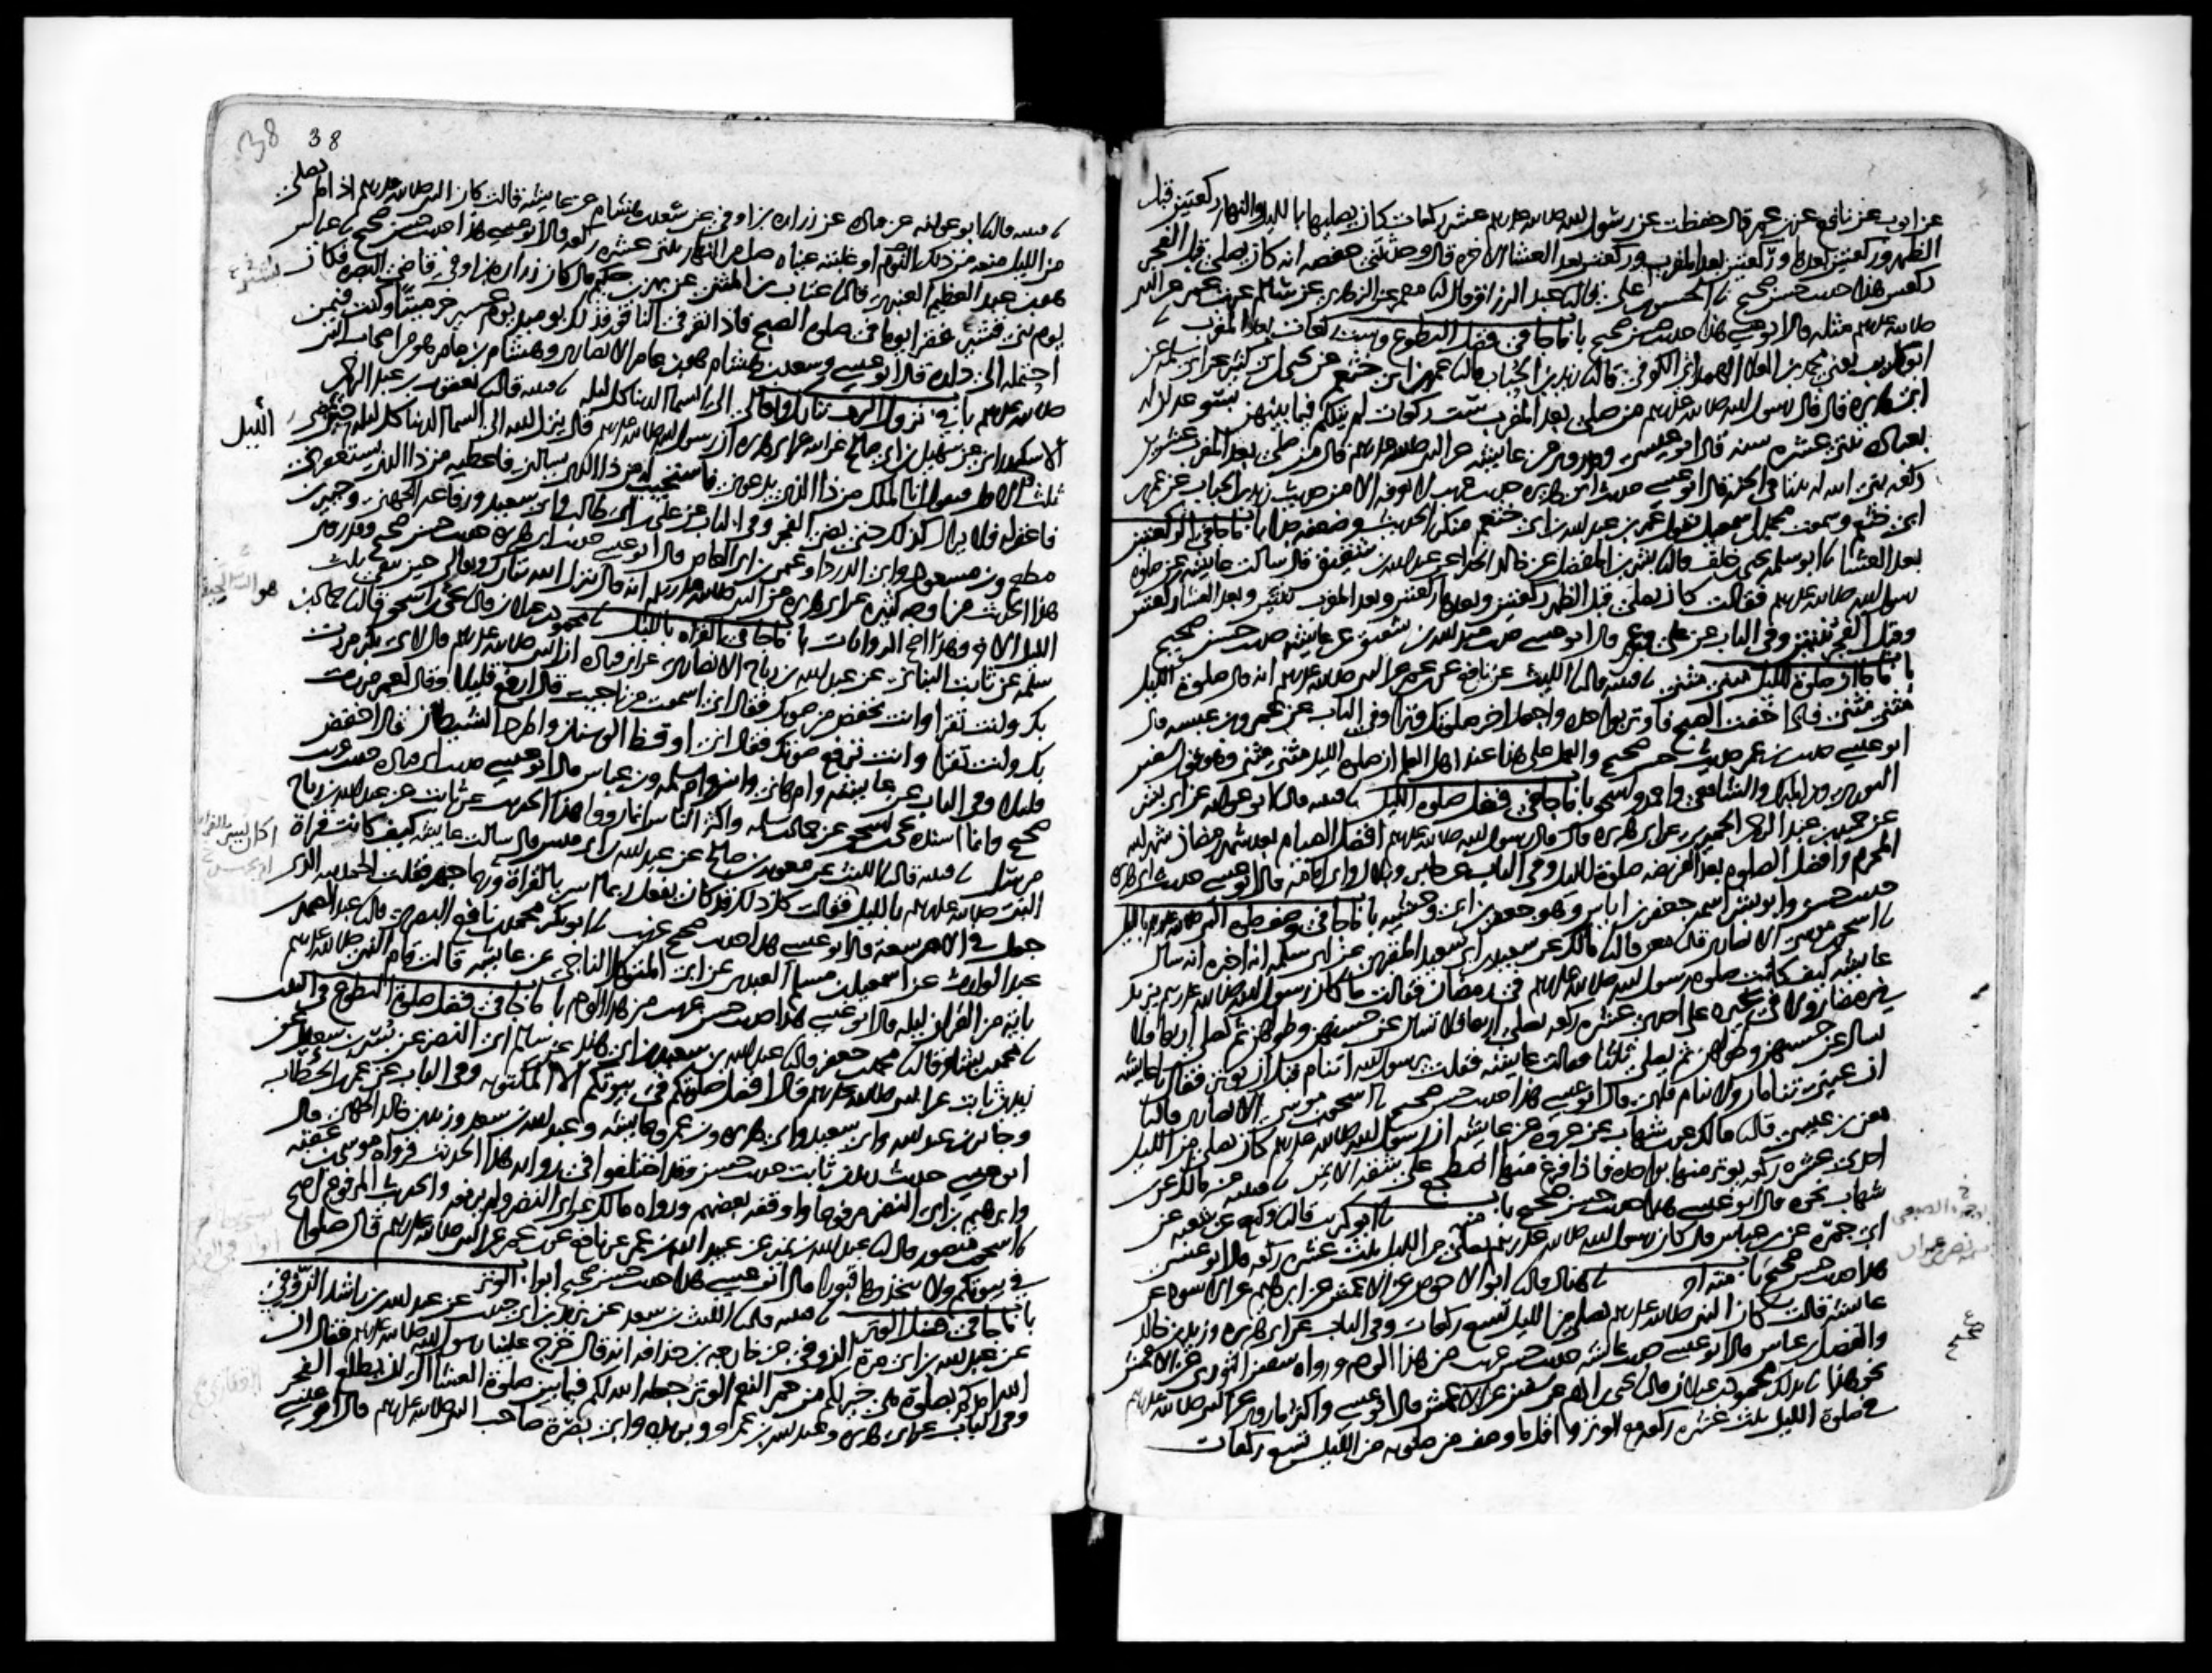 عن ايوب عن نافع عن بن عمر قال حفظت عن رسول الله صلى الله عليه وسلم عشر ركعات كان يصليها بالليل والنهار ركعتين قبل
الظهر وركعتين بعدها وركعتين بعد المغرب وركعتين بعد العشاء الاخره قال وحدثتني حفصه انه كان يصلي قبل الفجر
ركعتين هذا حديث حسن صحيح الحسن بن علي قال عبد الرزاق قال معمر عن الزهري عن سالم عن بن عمر عن النبي
صلى الله عليه وسلم مثله قال ابو عيسى هذا حديث حسن صحيح باب ما جا في فضل التطوع وست ركعات بعد المغرب
ابو كريب يعني محمد بن العلا الهمداني الكوفي قال زيد بن الحباب قال عمر بن ابي خثعم عن يحيى بن ابي كثير عن ابي سلمه عن
ابي هريره قال قال رسول الله صلى الله عليه وسلم من صلى بعد المغرب ست ركعات لم يتكلم فيما بينهن بسو عدلن له
بعباده ثنتي عشره سنه قال ابو عيسى وقد روي عن عايشه عن النبي صلى الله عليه وسلم قال من صلى بعد المغرب عشرين
ركعه بنى الله له بيتا في الجنه قال ابو عيسى حديث ابي هريره حديث غريب لا نعرفه الا من حديث زيد بن الحباب عن عمر بن
ابي خثعم وسمعت محمد بن اسمعيل يقول عمر بن عبد الله بن ابي خثعم منكر الحديث وضعفه جدا باب ما جا في الركعتين
بعد العشا ابو سلمه يحيى بن خلف قال بشر بن المفضل عن خالد الحذا عن عبد الله بن شقيق قال سالت عايشه عن صلوة
رسول الله صلى الله عليه وسلم فقالت كان يصلي قبل الظهر ركعتين وبعدها ركعتين وبعد المغرب ثنتين وبعد العشا ركعتين
وقبل الفجر ثنتين وفي الباب عن علي وبن عمر قال ابو عيسى حديث عبد الله بن شقيق عن عايشه حديث حسن صحيح
باب ما جا ان صلوة الليل مثنى مثنى قتيبه قال الليث عن نافع عن بن عمر عن النبي صلى الله عليه وسلم انه قال صلوة الليل
مثنى مثنى فاذا خفت الصبح فاوتر بواحده واجعل اخر صلوتك وترا وفي الباب عن عمرو بن عبسه قال
ابو عيسى حديث بن عمر حديث حسن صحيح والعمل على هذا عند اهل العلم ان صلوة الليل مثنى مثنى وهو قول سفين
الثوري وبن المبارك والشافعي واحمد واسحق باب ما جا في فضل صلوة الليل قتيبه قال ابو عوانه عن ابي بشر
عن حميد بن عبد الرحمن الحميري عن ابي هريره قال قال رسول الله صلى الله عليه وسلم افضل الصيام بعد شهر رمضان شهر الله
المحرم وافضل الصلوه بعد الفريضه صلوة الليل وفي الباب عن جابر وبلال وابي امامه قال ابو عيسى حديث ابي هريره
حديث حسن وابو بشر اسمه جعفر بن اياس وهو جعفر بن ابي وحشيه باب ما جا في وصف صلوه النبي صلى الله عليه وسلم بالليل
اسحق بن موسى الانصاري قال معن قال مالك عن سعيد بن ابي سعيد المقبري عن ابي سلمه انه اخبره انه سال
عايشه كيف كانت صلوه رسول الله صلى الله عليه وسلم في رمضان فقالت ما كان رسول الله صلى الله عليه وسلم يزيد
في رمضان ولا في غيره على احدى عشره ركعه يصلي اربعا فلا تسال عن حسنهن وطولهن ثم يصلي اربعا فلا
تسال عن حسنهن وطولهن ثم يصلي ثلاثا فقالت عايشه فقلت يرسول الله اتنام قبل ان توتر فقال يا عايشه
ان عيني تنامان ولا ينام قلبي قال ابو عيسى هذا حديث حسن صحيح اسحق بن موسى الانصاري قال
معن بن عيسى قال مالك عن بن شهاب عن عروه عن عايشه ان رسول الله صلى الله عليه وسلم كان يصلي من الليل
احدى عشره ركعه يوتر منها بواحده فاذا فرغ منها اضطجع على شقه الايمن قتيبه عن مالك عن بن
شهاب نحوه قال ابو عيسى هذا حديث حسن صحيح باب منه ابو كريب قال وكيع عن شعبه عن
ابي جمره عن بن عباس قال كان رسول الله صلى الله عليه وسلم يصلي من الليل ثلث عشره ركعه قال ابو عيسى
هذا حديث حسن صحيح باب منه هناد قال ابو الاحوص عن الاعمش عن ابرهيم عن الاسود عن
عايشه قالت كان النبي صلى الله عليه وسلم يصلي من الليل تسع ركعات وفي الباب عن ابي هريره وزيد بن خالد
والفضل بن عباس قال ابو عيسى حديث عايشه حديث حسن غريب من هذا الوجه ورواه سفين الثوري عن الاعمش
نحو هذا بذلك محمود بن غيلان قال يحيى بن ادم عن سفين عن الاعمش قال ابو عيسى واكثر ما روي عن النبي صلى الله عليه وسلم
في صلوة الليل ثلث عشره ركعه مع الوتر واقل ما وصف من صلوته من الليل تسع ركعات
38 38
قتيبه قال ابو عوانه عن قتاده عن زراره بن اوفى عن سعد بن هشام عن عايشه قالت كان النبي صلى الله عليه وسلم اذا لم يصلي
من الليل منعه من ذلك النوم او غلبته عيناه صلى من النهار ثنتي عشره ركعه قال ابو عيسى هذا حديث حسن صحيح عباس
هو بن عبد العظيم العنبري قال عتاب بن المثنى عن بهز بن حكيم قال كان زراره بن اوفى قاضي البصره فكان
يوم بني قشير فقرا يوما في صلوه الصبح فاذا نقر في الناقور فذلك يوميذ يوم عسير خر ميتا وكنت فيمن
احتمله الى داره قال ابو عيسى وسعد بن هشام هو بن عامر الانصاري وهشام بن عامر هو من اصحاب النبي
صلى الله عليه وسلم باب في نزول الرب تبارك وتعالى الى السما الدنيا كل ليله قتيبه قال يعقوب بن عبد الرحمن
الاسكندراني عن سهيل بن ابي صالح عن ابيه عن ابي هريره ان رسول الله صلى الله عليه وسلم قال ينزل الله الى السما الدنيا كل ليله حين يمضي
الليل
ثلث الاول فيقول انا الملك من ذا الذي يدعوني فاستجيب له من ذا الذي يسالني فاعطيه من ذا الذي يستغفرني
فاغفر له فلا يزال كذلك حتى يضي الفجر وفي الباب عن علي بن ابي طالب وابي سعيد ورفاعه الجهني وجبير بن
مطعم وبن مسعود وابي الدرداء وعثمن بن ابي العاص قال ابو عيسى حديث ابي هريره حديث حسن صحيح وقد روي
هذا الحديث من اوجه كثيره عن ابي هريره عن النبي صلى الله عليه وسلم انه قال ينزل الله تبارك وتعالى حين يبقى ثلث
الليل الاخر وهذا اصح الروايات باب ما جا في القراه بالليل محمود بن غيلان قال يحيى بن اسحق قال حماد بن
سلمه عن ثابت البناني عن عبد الله بن رباح الانصاري عن ابي قتاده ان النبي صلى الله عليه وسلم قال لابي بكر مررت
بك وانت تقرا وانت تخفض من صوتك فقال اني اسمعت من ناجيت قال ارفع قليلا وقال لعمر مررت
بك وانت تقرا وانت ترفع صوتك فقال اني اوقظ الوسنان واطرد الشيطان قال اخفض
قليلا وفي الباب عن عايشه وام هاني وانس وام سلمه وبن عباس قال ابو عيسى حديث ابي قتاده حديث
صحيح وانما اسنده يحيى بن اسحق عن حماد بن سلمه واكثر الناس انما رووا هذا الحديث عن ثابت عن عبد الله بن رباح
مرسل قتيبه قال الليث عن معويه بن صالح عن عبد الله بن ابي قيس قال سالت عايشه كيف كانت قراة
النبي صلى الله عليه وسلم بالليل فقالت كل ذلك قد كان يفعل ربما اسر بالقراة وربما جهر فقلت الحمد لله الذي
جعل في الامر سعة قال ابو عيسى هذا حديث صحيح غريب ابو بكر محمد بن نافع البصري قال عبد الصمد بن
عبد الوارث عن اسمعيل بن مسلم العبدي عن ابي المتوكل الناجي عن عايشه قالت قام النبي صلى الله عليه وسلم
باية من القران ليلة قال ابو عيسى هذا حديث حسن غريب من هذا الوجه باب ما جا في فضل صلوة التطوع في البيت
محمد بن بشار قال محمد بن جعفر قال عبد الله بن سعيد بن ابي هند عن سالم ابي النضر عن بسر بن سعيد عن
زيد بن ثابت عن النبي صلى الله عليه وسلم قال افضل صلوتكم في بيوتكم الا المكتوبه وفي الباب عن عمر بن الخطاب
وجابر بن عبد الله وابي سعيد وابي هريره وبن عمر وعايشه وعبد الله بن سعد وزيد بن خالد الجهني قال
ابو عيسى حديث زيد بن ثابت حديث حسن وقد اختلفوا في روايه هذا الحديث فرواه موسى بن عقبه
وابرهيم بن ابي النضر مرفوعا واوقفه بعضهم ورواه مالك عن ابي النضر ولم يرفعه والحديث المرفوع اصح
اسحق بن منصور قال عبد الله بن نمير عن عبيد الله بن عمر عن نافع عن بن عمر عن النبي صلى الله عليه وسلم قال صلوا
في بيوتكم ولا تتخذوها قبورا قال ابو عيسى هذا حديث حسن صحيح ابواب الوتر
باب ما جا في فضل الوتر قتيبه قال الليث بن سعد عن يزيد بن ابي حبيب عن عبد الله بن راشد الزوفي
عن عبد الله بن ابي مره الزوفي عن خارجه بن حذافه انه قال خرج علينا رسول الله صلى الله عليه وسلم فقال ان
الله امدكم بصلوة هي خير لكم من حمر النعم الوتر جعله الله لكم فيما بين صلوة العشا الى ان يطلع الفجر
وفي الباب عن ابي هريره وعبد الله بن عمرو وبريده وابي بصرة صاحب النبي صلى الله عليه وسلم قال ابو عيسى